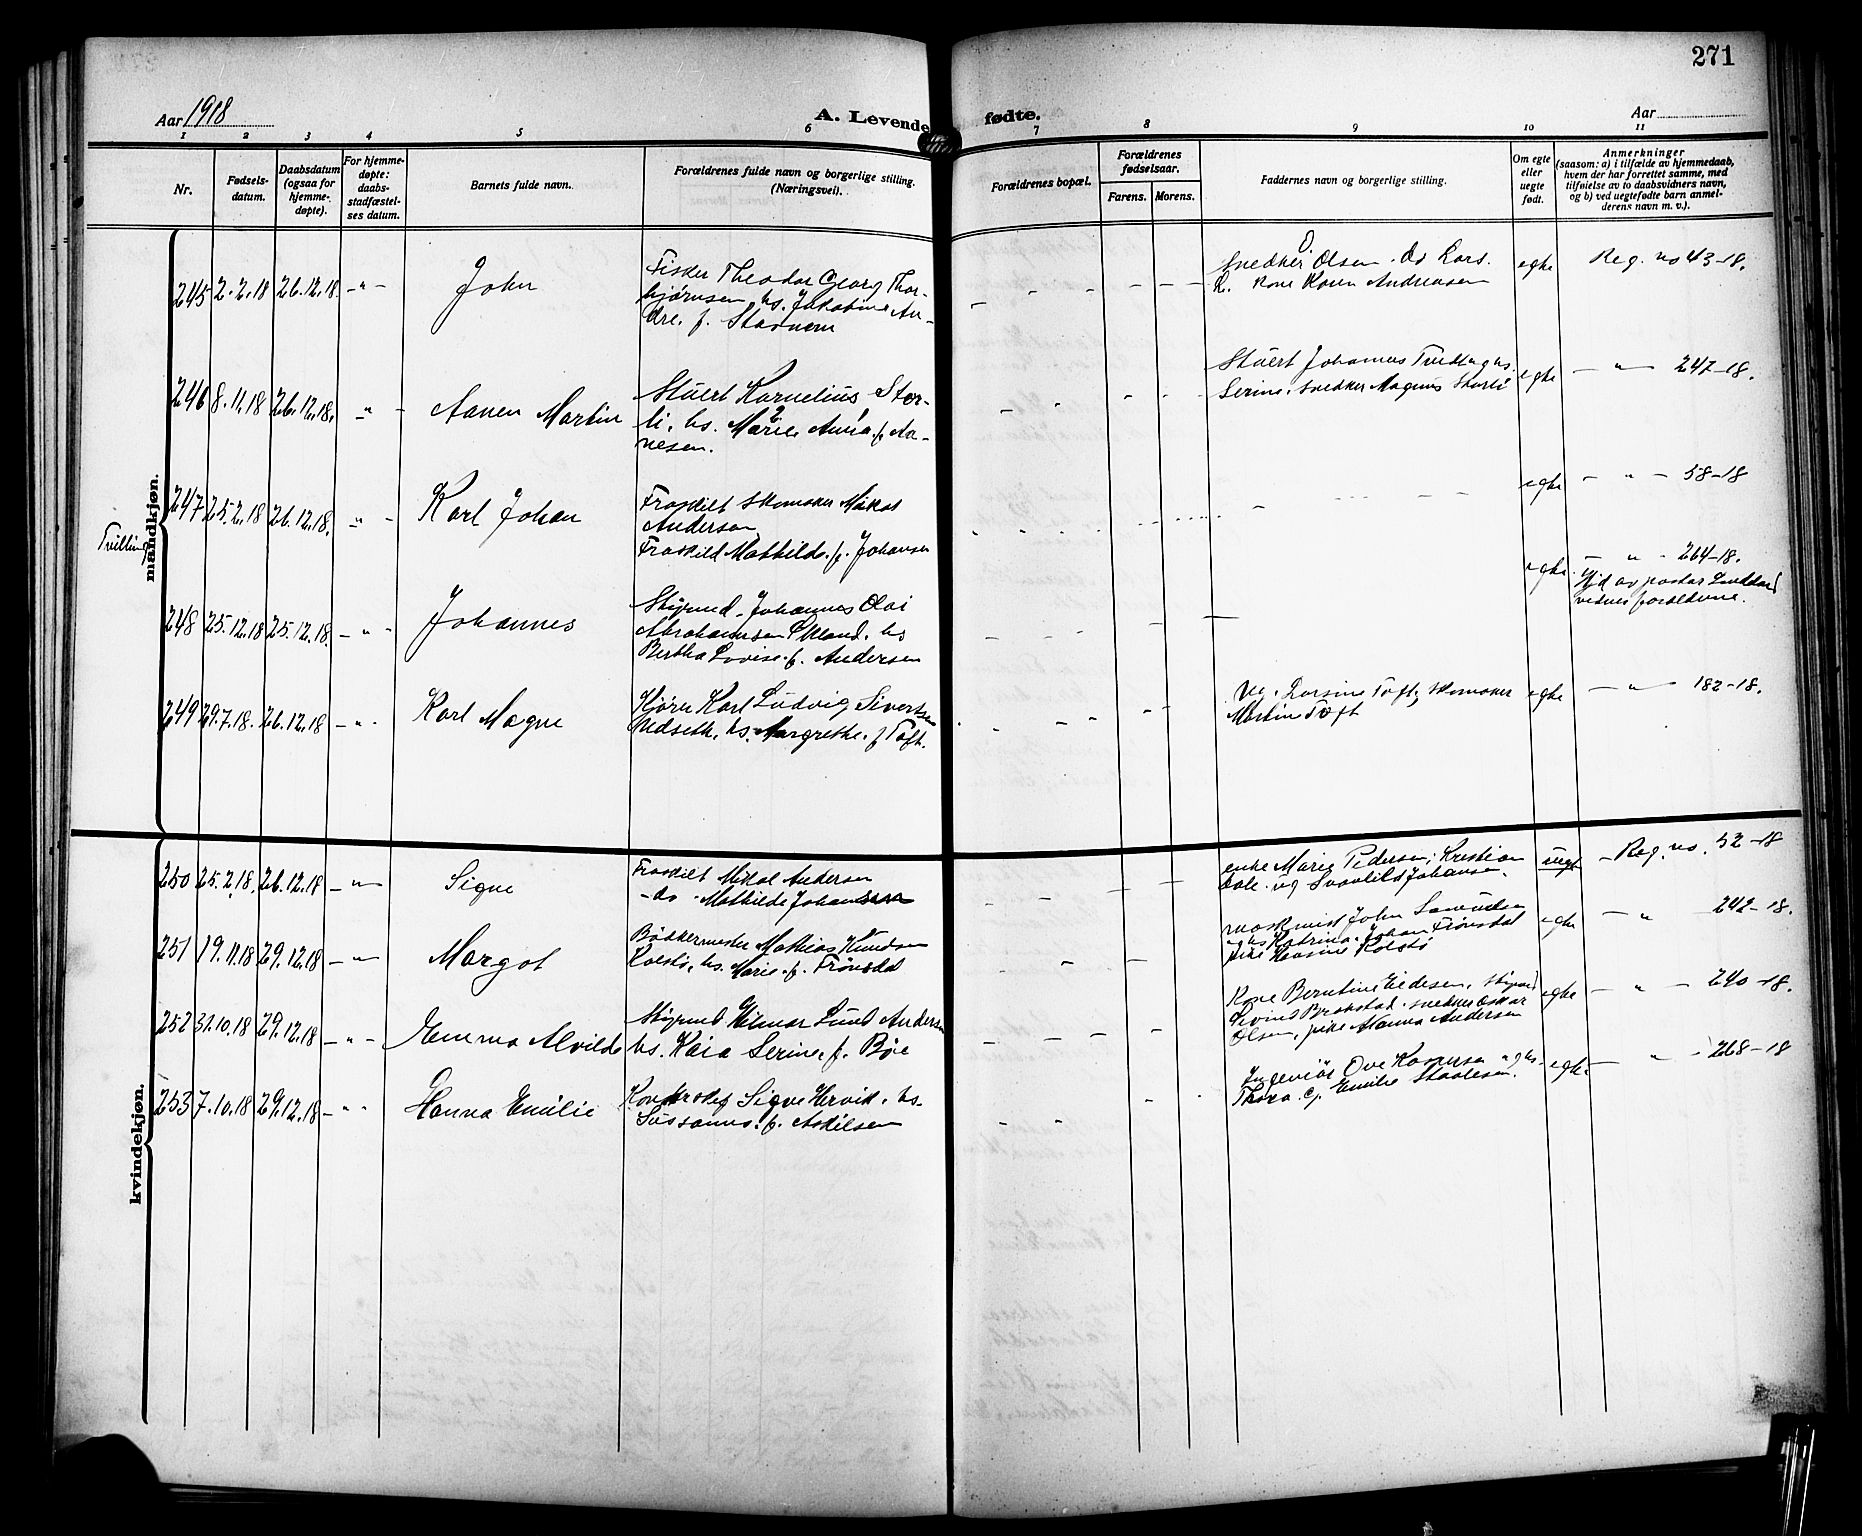 271
Aar 1918
A. Levende fødte.
Aar
1 2 3 4 5 6 7 8 9 10 11
Nr.
Fødsels-
datum.
Daabsdatum
(ogsaa for
hjemme-
døpte).
For hjemme-
døpte:
daabs-
stadfæstel-
ses datum.
Barnets fulde navn.
Forældrenes fulde navn og borgerlige stilling.
(Næringsvei).
Forældrenes bopæl.
Forældrenes
fødselsaar.
Farens. Morens.
Faddernes navn og borgerlige stilling.
Om egte
eller
uegte
født.
Anmerkninger
(saasom: a) i tilfælde av hjemmedaab,
hvem der har forrettet samme, med
tilføielse av to daabsvidners navn,
og b) ved uegtefødte barn anmel-
derens navn m. v.).
mandkjøn.
245 2.2.18 26.12.18. - " - John
Fisker Theodor Georg Thor-
bjørnsen, hs. Jakobine An-
dre. f. Stavnem
- - - - - -
Snedker Olsen. do Lars.
k. kone Karen Andreasen
egte
Reg. no 43-18.
246 8.11.18 26.12.18. " - Aanen Martin
Stuert Kornelius Stor-
li, hs. Marie Anna f. Aa-
nesen.
Stuert Johannes Tvedt og hs.
Serine, snedker Magnus Storli
egte
- " - 247-18.
Tvilling
247 25.2.18 26.12.18. " - Karl Johan
Fraskilt skomaker Mikal
Andersen
Fraskild Mathilde. f. Johansen
egte
- " - 58-18
248 25.12.18 25.12.18. - " - Johannes
Skipmd. Johannes Olai
Abrahamsen Økland. hs
Bertha Lovise. f. Andersen
egte
- " - 264-18.
Hjd av pastor
vidner forældrene.
249 29.7.18. 26.12.18 - " - Karl Magne
Kjører Karl Ludvig Sivertsen
Midseth, hs. Margrethe. f Toft.
Ug. Larsine Toft, skomaker
Martin Toft
egte
- " - 182-18.
kvindekjøn.
250 25.2.18. 26.12.18 - " - Signe
Fraskilt Mikal Andersen
- do - Mathilde Johansen
enke Marie Pedersen; Kristian
Dale. ug Svanhild Johansen.
uegt
- Reg. no. 52-18
251 19.11.18 29.12.18 - " - Margot
Bødkermester Mathias Knudsen
Kolstø, hs. Marie. f. Frønsdal
maskinist John Samuelsen
og hs Katrina. Johan Frønsdal
pike Hansine Kolstø
egte
- " - 242-18.
252 31.10.18 29.12.18 - " - Emma Alvilde
Skipmd Hilmar Lund Andersen
hs. Kaia Serine. f. Bøe
Kone Berntine Eidesen, skipmd
Sivind Brekstad. snekker Oskar
Olsen, pike Nanna Andersen
egte
- " - 240-18.
253 7.10.18 29.12.18 - " - Hanna Emilie
Kontrollør Sigve Hervik. hs.
Susanna. f. Askilsen
Ingeniør Ove Kaspersen og hs.
Thora. og Emilie Staalesen.
egte
- " - 268-18